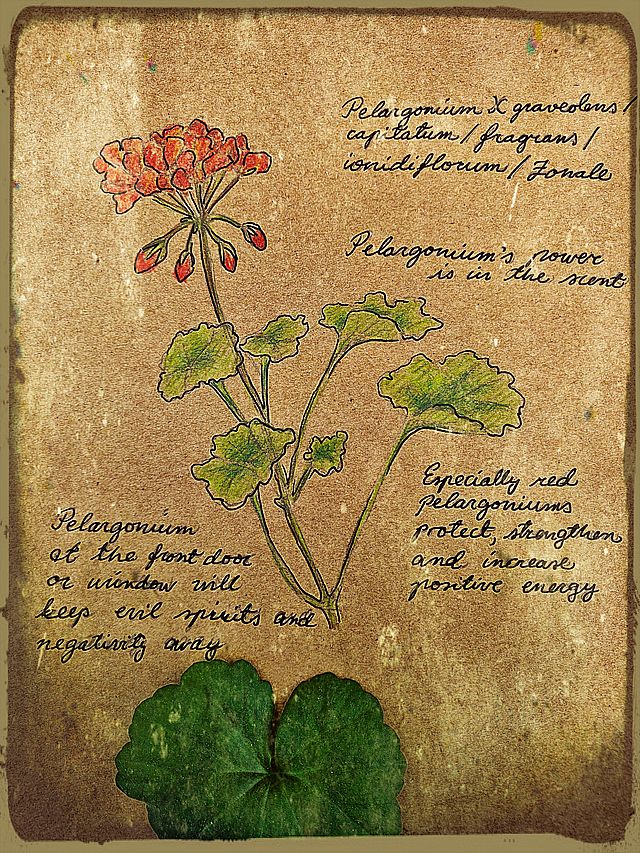 Pelargonium X graveolens/
capitatum/fragrans/
ionidiflorum/Zonale
Pelargonium's power
is in the scent
Especially red
pelargoniums
protect, strengthen
and increase
positive energy
Pelargonium
at the front door
or window will
keep evil spirits and
negativity away